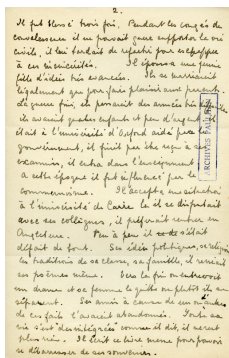 2.
Il fut blessé trois fois. Pendant les congés de
convalescence il ne pouvait guère supporter la vie
civile, il lui tardait de repartir pour échapper
à ces mesquineries. Il épousa une jeune
fille d'idées très avancées. Ils se marièrent
légalement que pour faire plaisir aux parents.
guerre finie, en passant des années très
ils avaient quatre enfants et peu d'argent, il
était à l'université d'Oxford aidé par le
gouvernement, il finit par être reçu à ses
examens, il entra dans l'enseignement.
A cette époque il fut influencé par le
communisme. Il accepta une situation
à l'université du Caire là il se disputait
avec ses collègues, il préférait rentrer en
Angleterre. Peu à peu il s'était
défait de tout. Ses idées politiques,
les traditions de sa classe, sa famille, il reniait
ses poèmes même. Vers la fin on entrevoit
un drame et sa femme le quitte ou plutôt ils se
séparent. Ses amis à cause de ceci
de ces faits l'avaient abandonné. Toute sa
vie s'est comme il dit, il
plus rien. Il écrit ce livre même pour pouvoir
se débarrasser de ses souvenirs.
ARCHIVES PAULHAN